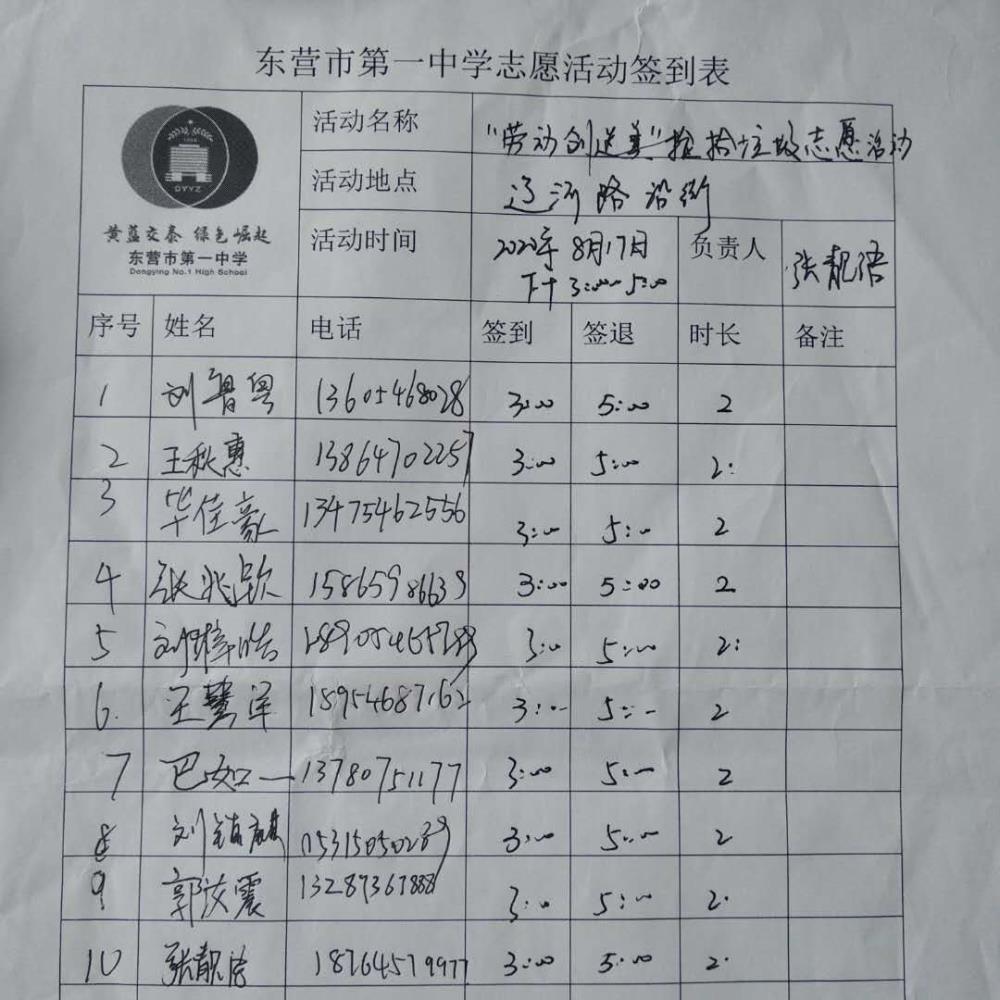 东营市第一中学志愿活动签到表
DYYZ
黄蓝交泰 绿色崛起
东营市第一中学
Dongying No.1 High School
活动名称 "劳动创造美"捡拾垃圾志愿活动
活动地点 辽河路沿街
活动时间 2020年8月17日 下午 3:00-5:00 负责人 张靓语
序号 姓名 电话 签到 签退 时长 备注
1 刘鲁粤 13605468028 3:00 5:00 2
2 王秋惠 13864702257 3:00 5:00 2
3 毕佳豪 13475462556 3:00 5:00 2
4 张兆歆 15865986639 3:00 5:00 2
5 刘梓皓 3:00 5:00 2
6. 王慧洋 18954687162 3:00 5:00 2
7 巴如一 13780751177 3:00 5:00 2
8 刘镇麒 15315050239 3:00 5:00 2
9 郭汝震 13287367888 3:00 5:00 2
10 张靓洁 18764579977 3:00 5:00 2